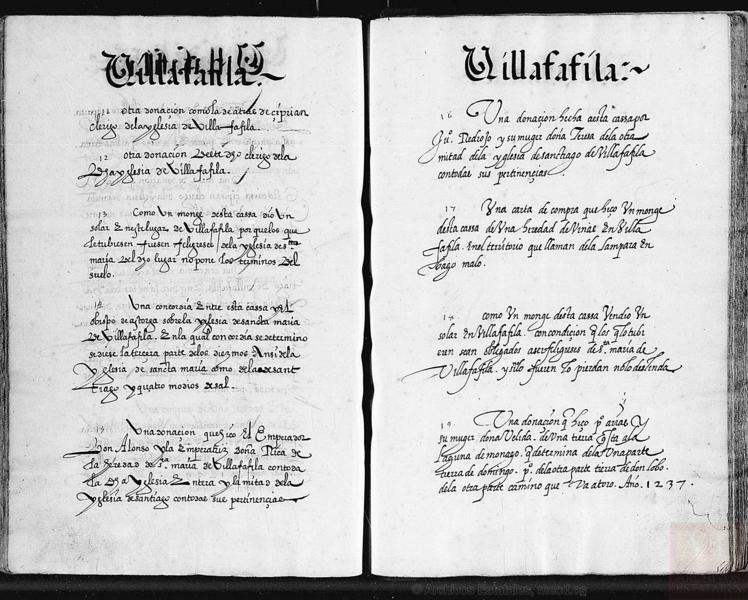 Villafafila:~
11 otra donacion como la de arias de ciprian
clerigo de la yglesia de Villa fafila.
12 otra donacion deste dho clerigo de la
dha yglesia de Villafafila.
13 Como Un monge desta cassa dio Un
solar En este lugar de Villafafila por que los que
le tubiesen fuesen feligreses de la yglesia de sta
maria del dho lugar no pone los terminos del
suelo.
14 Una concordia Entre esta cassa y el
obispo de astorga sobre la yglesia de sancta maria
de Villafafila. En la qual concordia se determino
se diese la tercera parte de los diezmos Ansi de la
yglesia de sancta maria como de la de sant
tiago y quatro modios de sal.
15 Una donacion que hiço El Emperador
Don Alonso y la Emperatriz Doña Rica de
la heredad de s.ta maria de Villafafila con toda
la dha yglesia Entera y la mitad de la
yglesia de santiago con todas sus pertinençias
Villafafila:~
16 Una donaçion hecha a esta cassa por
Ju.o Pedroso y su muger doña Teresa de la otra
mitad de la yglesia de sanctiago de Villafafila
con todas sus pertinençias
17 Una carta de compra que hiço Un monge
desta cassa de Una heredad de Urnias En Villa
fafila. En el territorio que llaman de la lampaza En
pago malo.
como Un monge desta cassa Vendio Un
solar En Villafafila. con condicion q los q lo tubi
eren sean obligados a ser feligreses de s.ta maria de
Villafafila. y si no fueren lo pierdan
Una donaçion q hiço p.o arias y
su muger doña Velida. de Una tierra q esta a la
laguna de monago. q determina de la Una parte
tierra de domingo. p.o de la otra parte tierra de don lobo.
de la otra parte camino que Va a toro. Año. 1237.